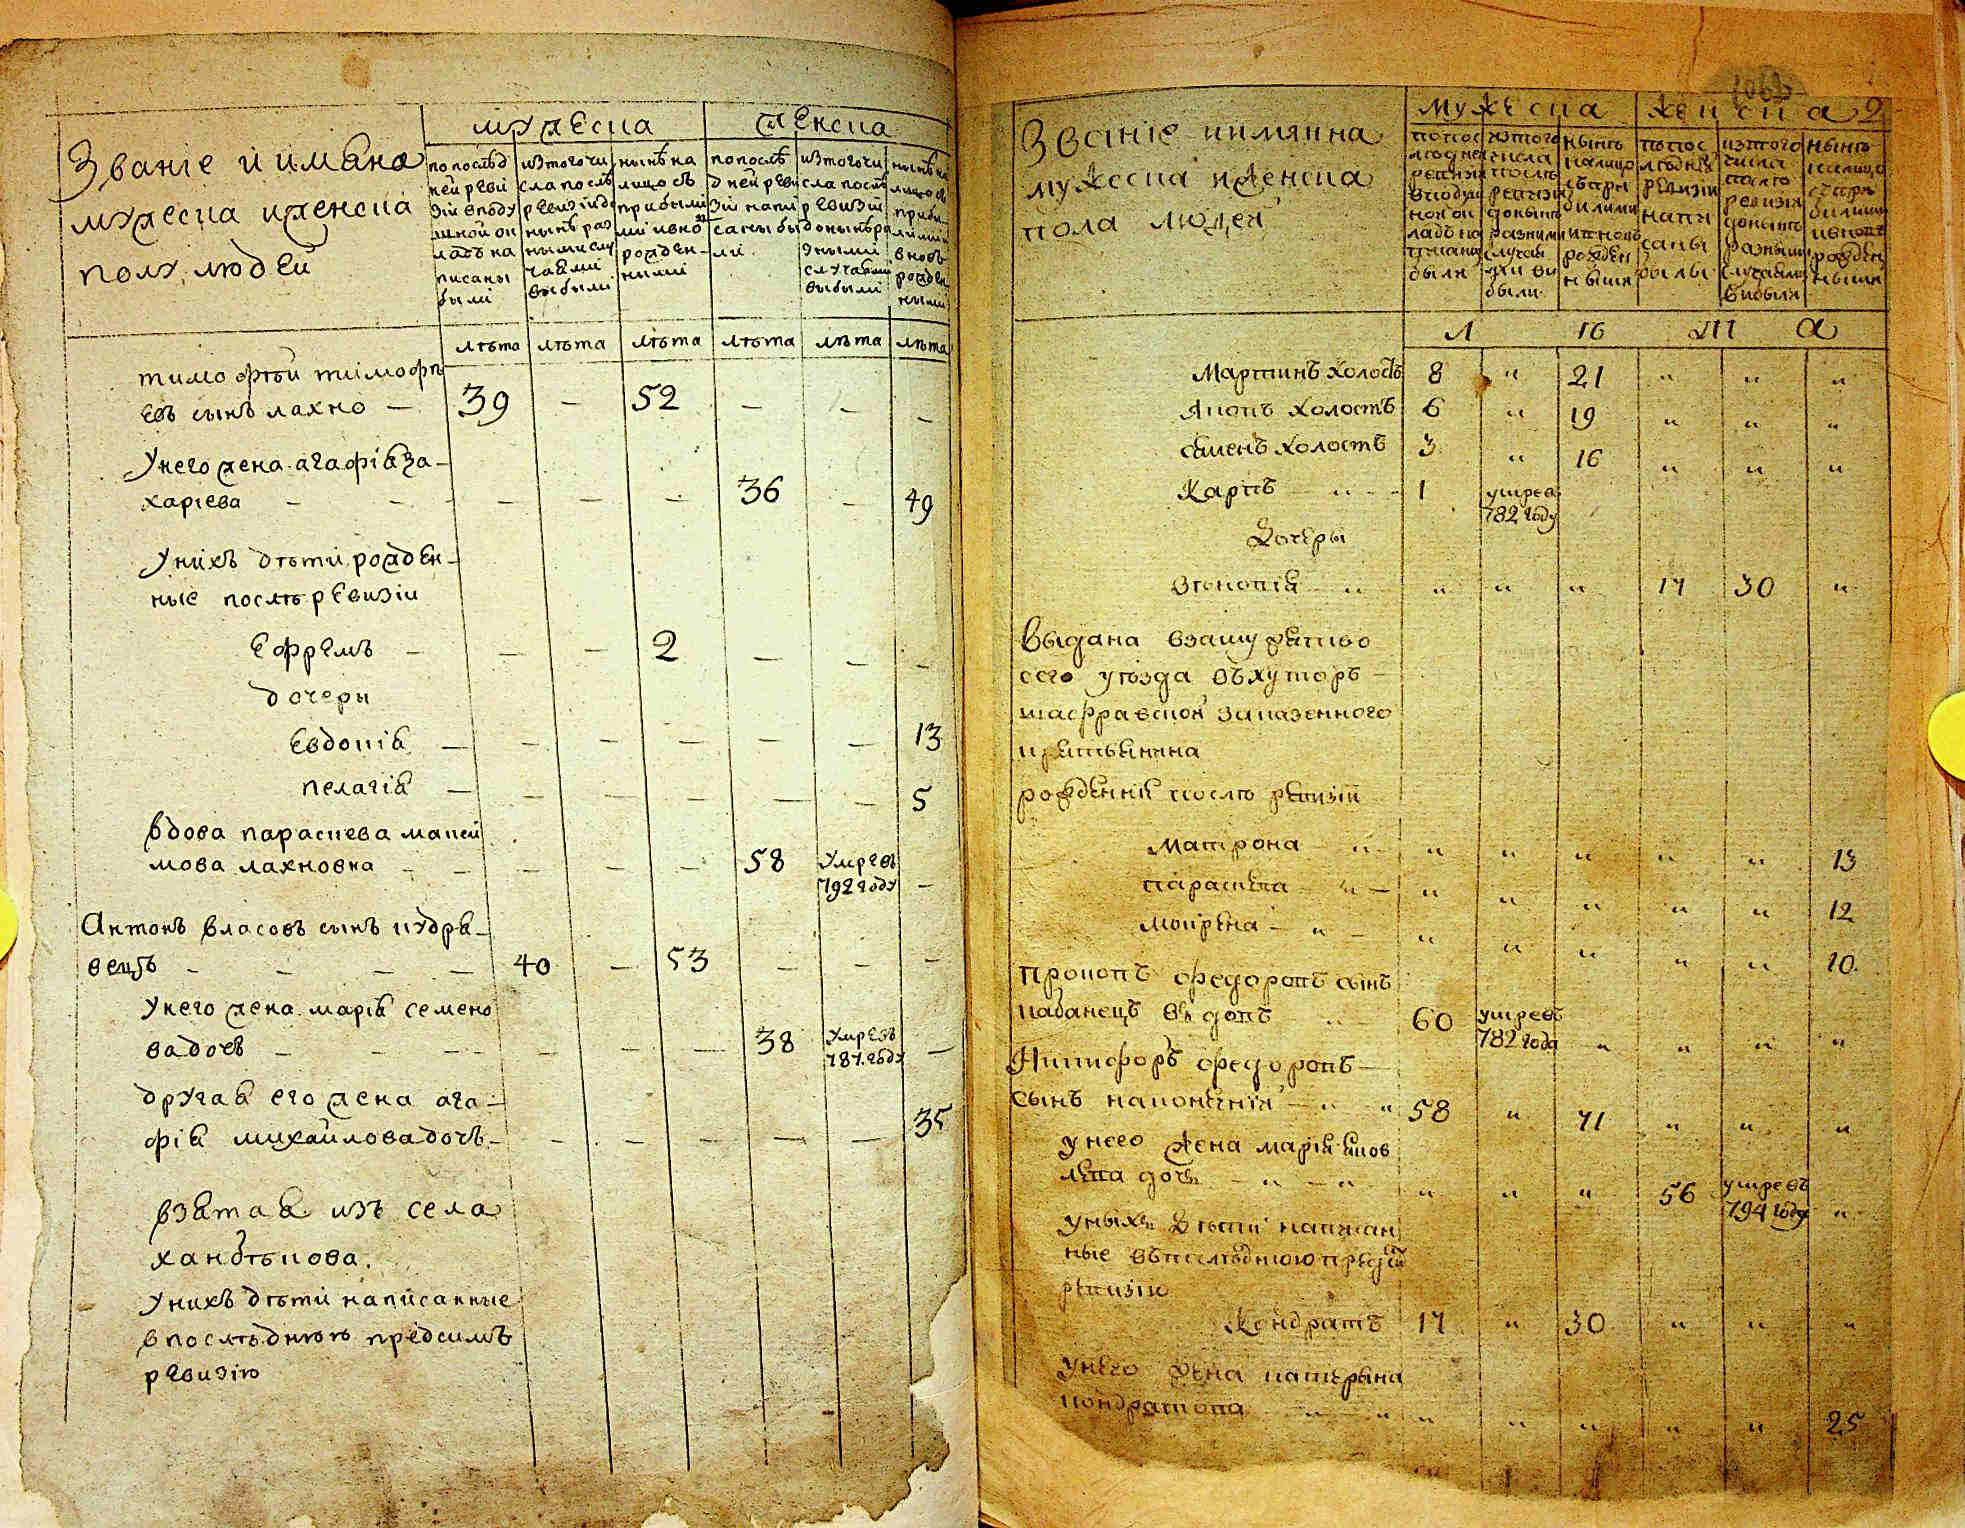 Званіе и имѣна
мужеска и женска
полу людей
мужеска
женска
по послѣд
ней реви
зіи в поду
шной ок
ладъ на
писаны
были
из того чи
сла послѣ
ревизіи до
нынѣ раз
ными слу
чаями
выбыли
нынѣ на
лицо съ
прибылы
ми и вно
рожден-
ними
по послѣ
дней реви
зіи напи
саны бы
ли
из того чи
сла послѣ
ревизіи
до нынѣ ра
зными
случаями
выбыли
нынѣ на
лицо съ
прибы-
лыми
вновь
рожден
ными
лѣта лѣта лѣта лѣта лѣта лѣта
тимофѣй тимофѣ
евъ сынъ лахно — 39 — 52 — — —
У него жена агафія за-
харіева — — — — — — 36 — 49
У нихъ дѣти рожден-
ные послѣ ревизіи
Ефремъ — — — 2 — — —
дочеры
Евдокія — — — — — — 13
пелагія — — — — — — 5
вдова параскева макси
мова лахновка — — — — — 58 умре въ
792 году —
Антонъ власовъ сынъ кудря-
вецъ — — — — 40 — 53 — — —
У него жена марія семено
ва дочъ — — — — — — 38 умре въ
787 году —
другая его жена ага-
фія михайлова дочъ — — — — — — 35
взятая изъ села
хандѣлова.
У нихъ дѣти написанные
в послѣднюю предсимъ
ревизію
Званіе и имянна
мужеска и женска
пола людей
мужеска
женска 2
попос
лѣдней
ревизіи
в подуш
ной ок
ладъ на
писаны
были
из того
числа
послѣ
ревизіи
донынѣ
разними
случая
ми ви
были
нынѣ
налицо
съ при
билими
и вновь
рожден
ными
попос
лѣдней
ревизіи
напи
саны
были
из того
числа
послѣ
ревизіи
донынѣ
разними
случаями
вибыли
нынѣ
налицо
съ при
билими
и вновь
рожден
ними
Л ѣ т а
Мартинъ холостъ 8 " 21 " " "
Яковъ холостъ 6 " 19 " " "
Семенъ холостъ 3 " 16 " " "
Карпъ " 1 умре въ
782 году
Дочеры
Зѣновія " " " " 17 30 "
Выдана в замужество
сего уѣзда въ хуторъ
шафравской за казенного
крестьянина
рожденнія послѣ ревизіи
Матрона " " " " " " 13
параскева " " " " " " 12
мокрена " " " " " " 10
прокопъ федоровъ сынъ
кабанецъ вдовъ " 60 умре въ
782 года " " " "
Никифоръ федоровъ
сынъ наконечній " " 58 " 71 " " "
у него жена марія яков
лева дочь " " " " " 56 умре въ
794 году "
у нихъ дѣти написан
ные въ послѣднюю предсимъ
ревизію
Кондратъ 17 " 30 " " "
у него жена катерина
кондратова " " " " " " " 25